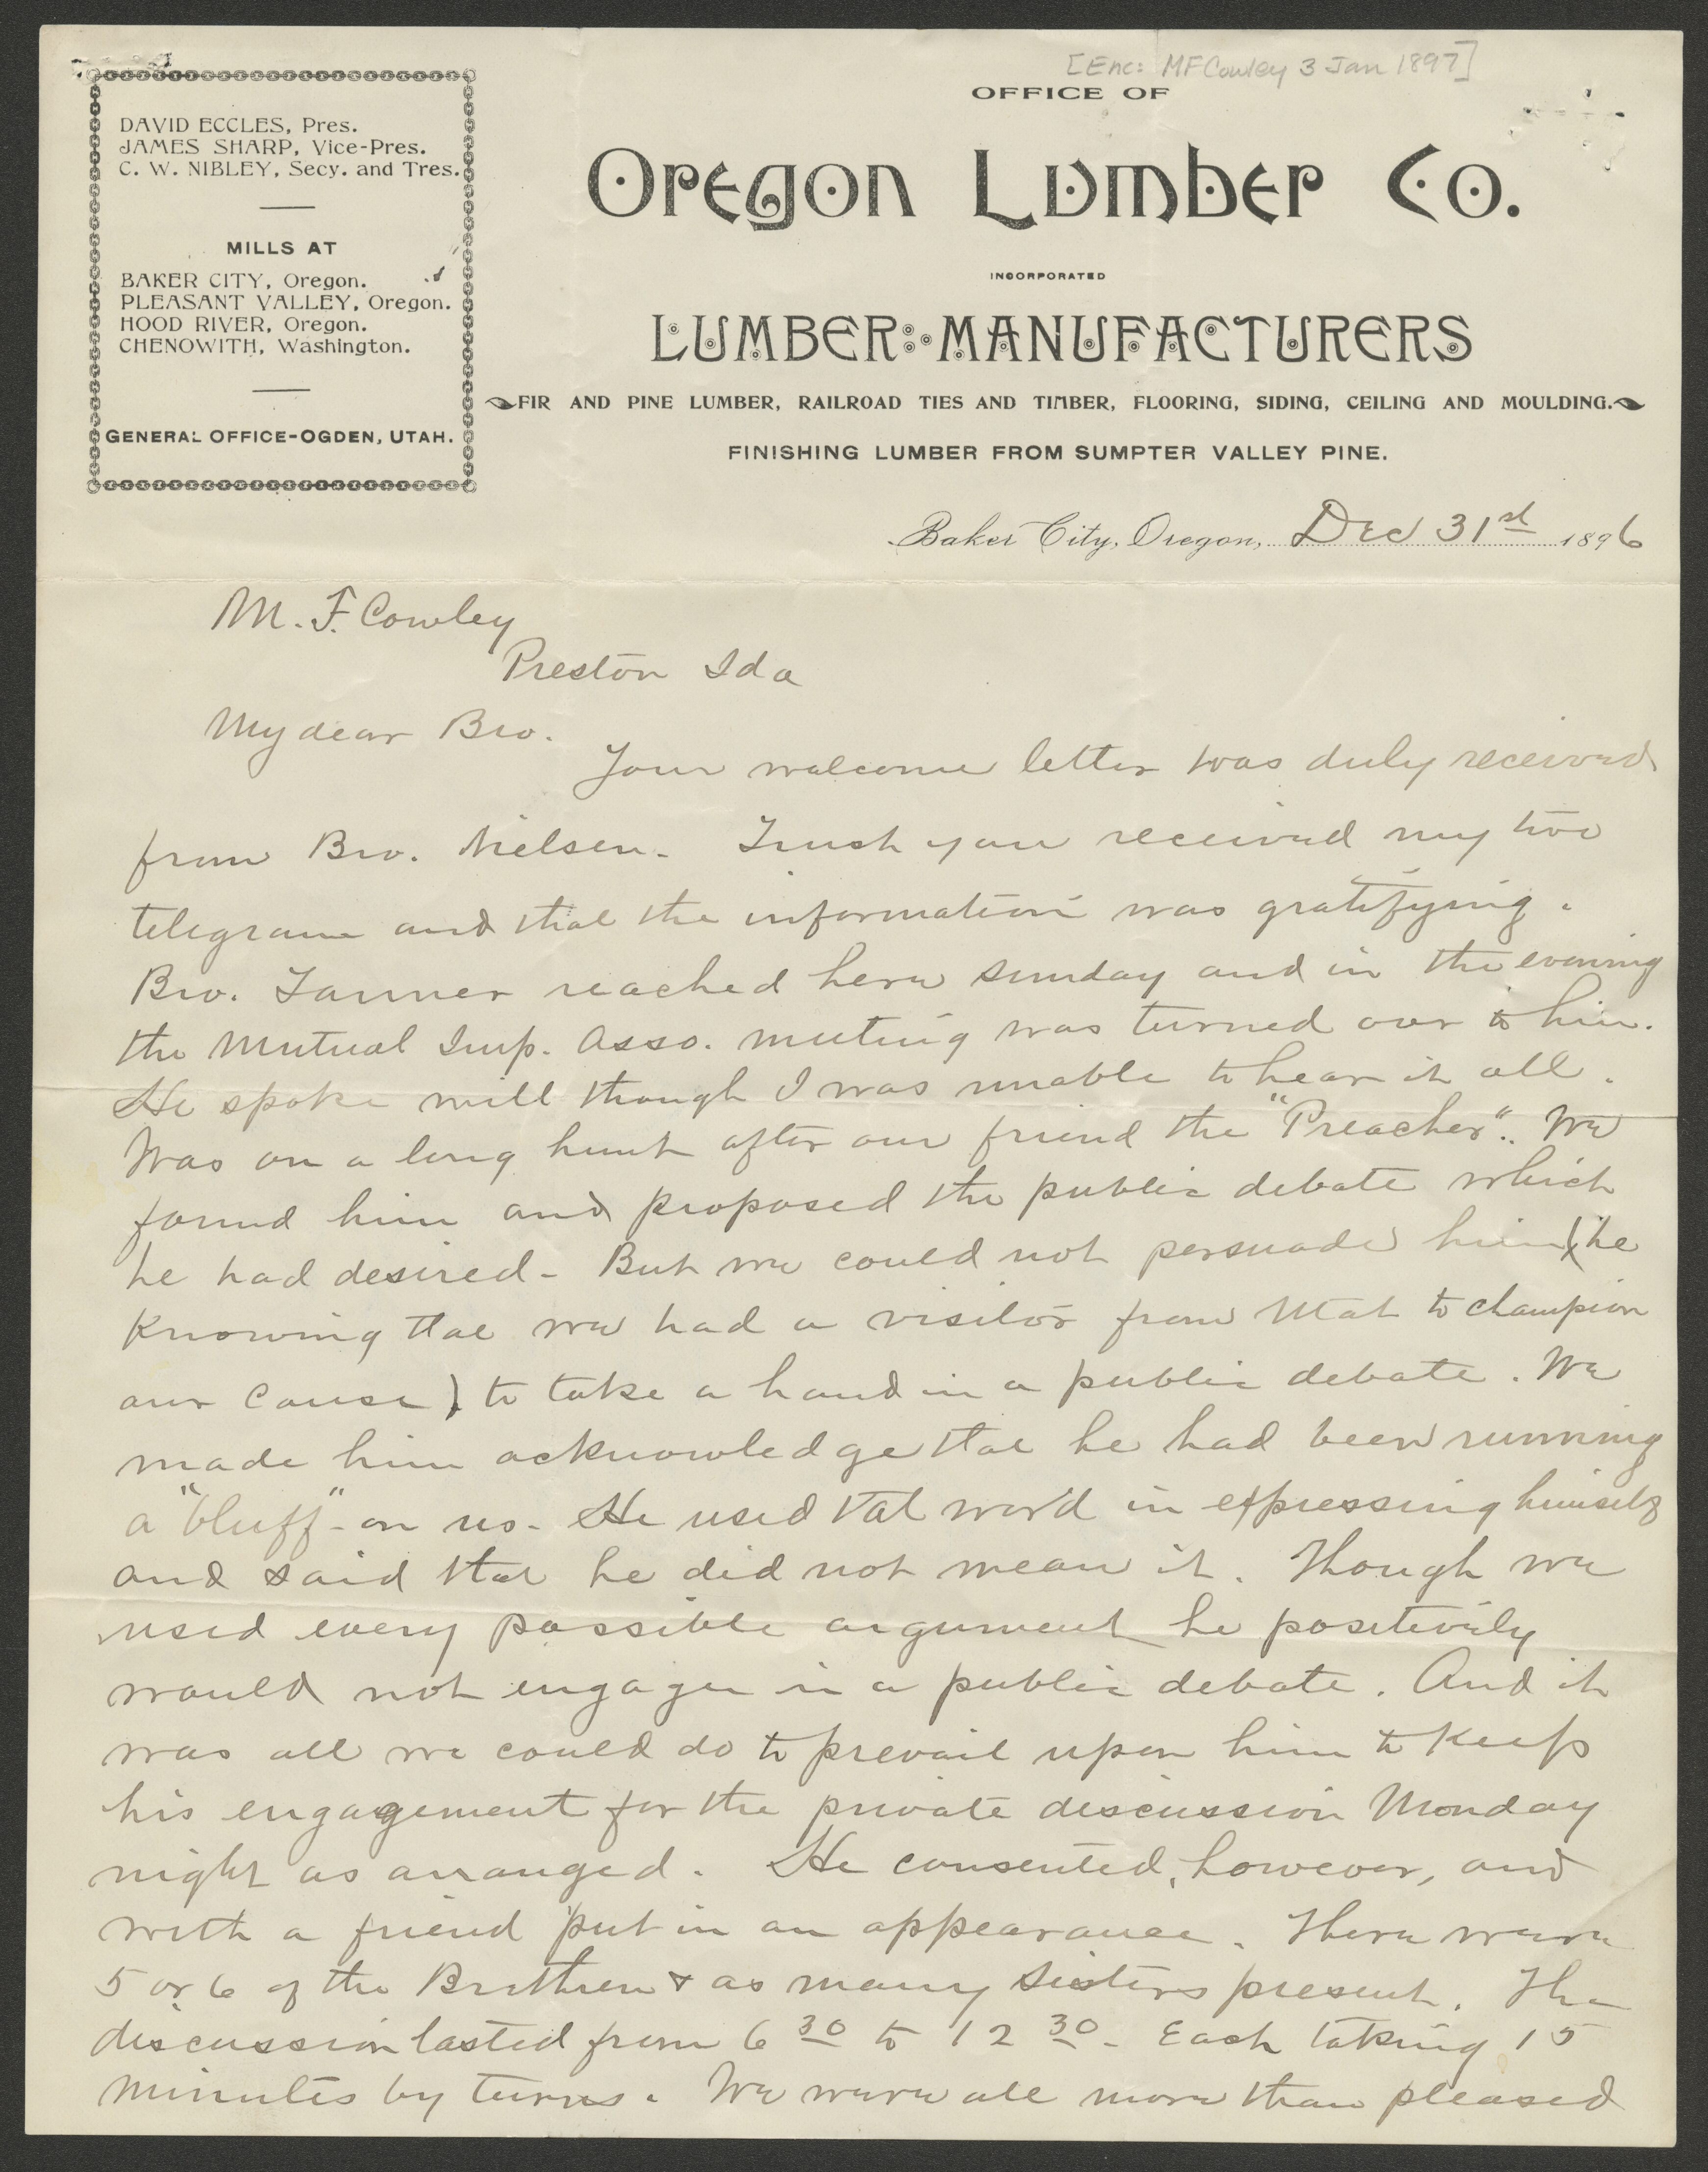 [Enc: MFCowley 3 Jan 1897]
DAVID ECCLES, Pres.
JAMES SHARP, Vice-Pres.
C. W. NIBLEY, Secy. and Tres.
MILLS AT
BAKER CITY, Oregon.
PLEASANT VALLEY, Oregon.
HOOD RIVER, Oregon.
CHENOWITH, Washington.
GENERAL OFFICE-OGDEN, UTAH.
OFFICE OF
Oregon Lumber Co.
INCORPORATED
LUMBER MANUFACTURERS
FIR AND PINE LUMBER, RAILROAD TIES AND TIMBER, FLOORING, SIDING, CEILING AND MOULDING.
FINISHING LUMBER FROM SUMPTER VALLEY PINE.
Baker City, Oregon, Dec 31st 1896
M. F. Cowley
Preston Ida
My dear Bro.
Your welcome letter was duly received
from Bro. Nielsen. Trust you received my two
telegrams and that the information was gratifying.
Bro. Tanner reached here Sunday and in the evening
the Mutual Imp. Asso. meeting was turned over to him.
He spoke well though I was unable to hear it all.
Was on a long hunt after our friend the "Preacher". We
found him and proposed the public debate which
he had desired - But we could not persuade him (he
knowing that we had a visitor from Utah to champion
our cause) to take a hand in a public debate. We
made him acknowledge that he had been running
a "bluff" - on us - He used that word in expressing himself
and said that he did not mean it. Though we
used every possible argument he positively
would not engage in a public debate. And it
was all we could do to prevail upon him to keep
his engagement for the private discussion Monday
night as arranged. He consented, however, and
with a friend put in an appearance. There were
5 or 6 of the Brethren & as many sisters present. The
discussion lasted from 6 30 to 12 30 - Each taking 15
minutes by turns. We were all more than pleased